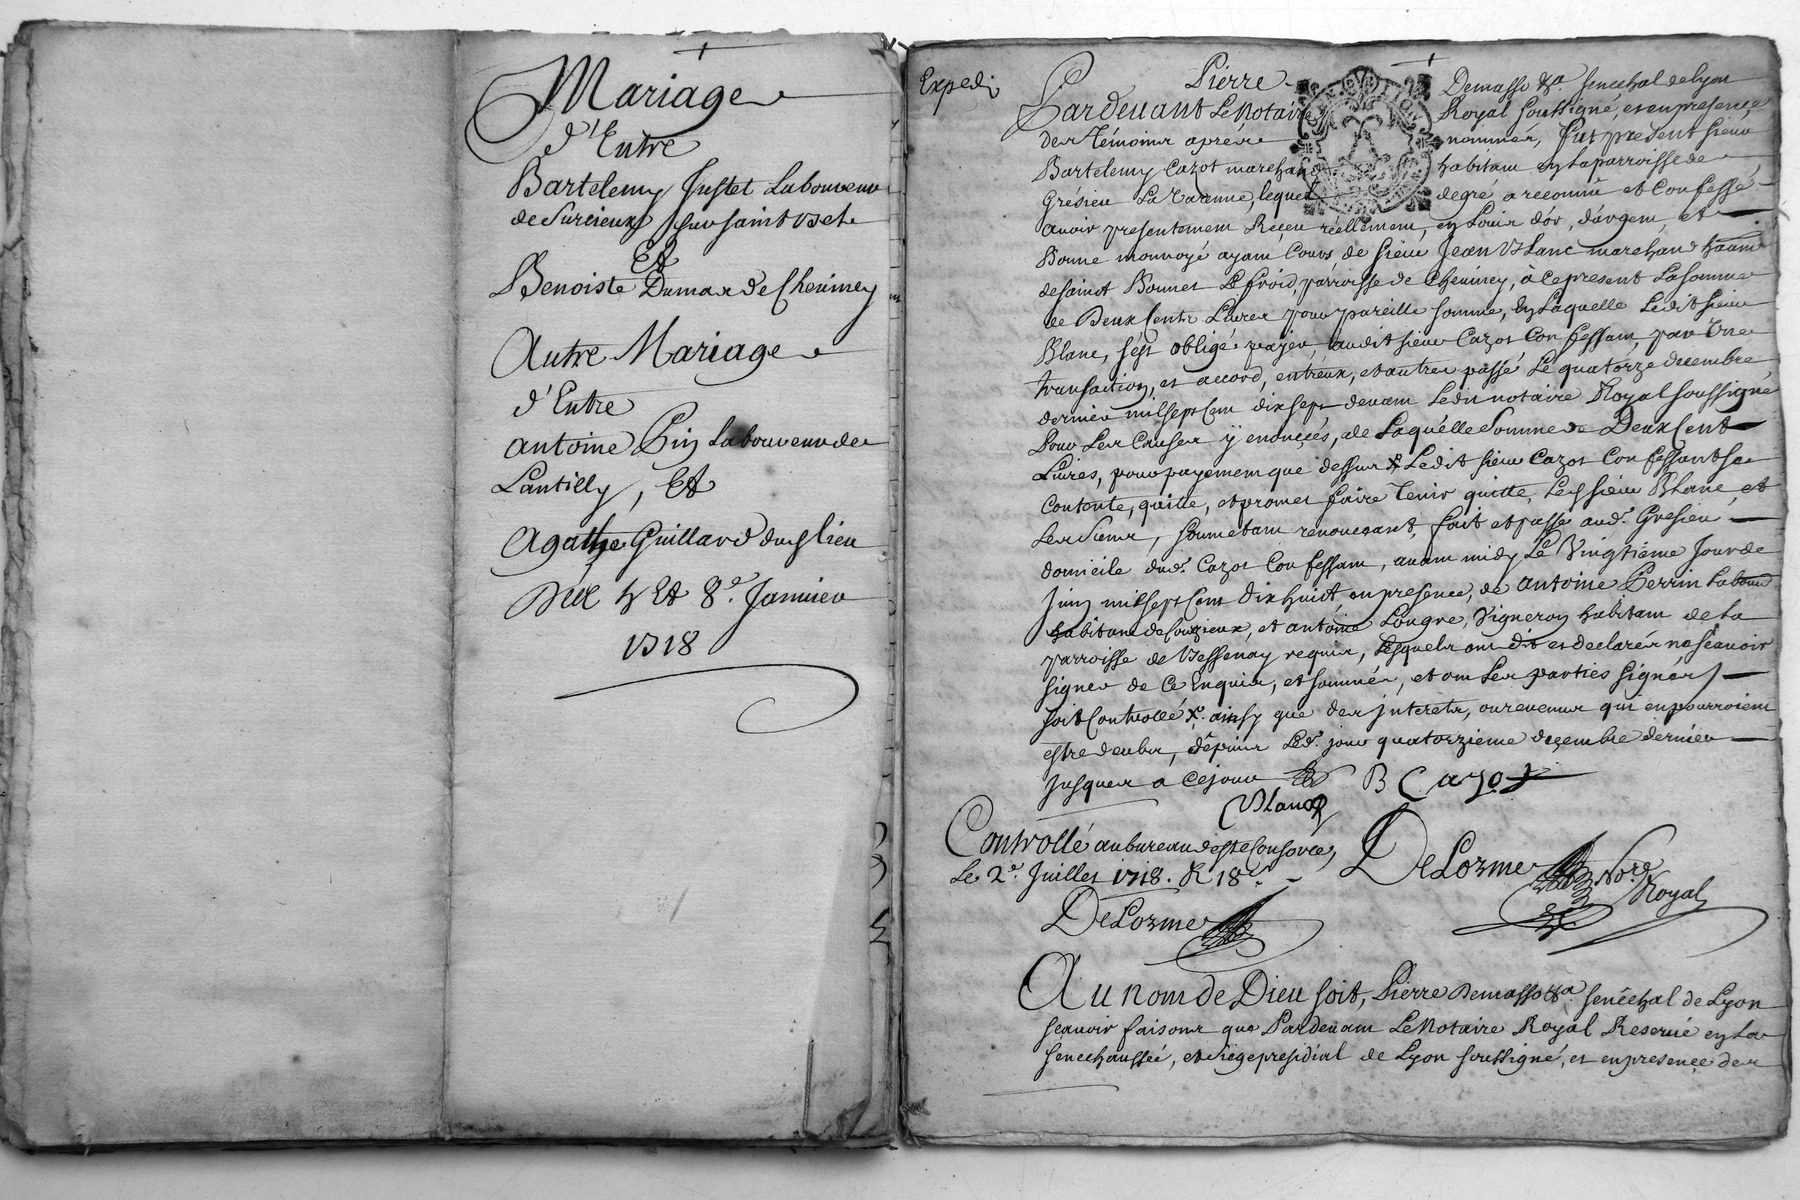 Mariage
d'Entre
Bartelemy Justet Laboureur
de Surcieux sur saint Bel
Et
Benoiste Dumas de Cheviney
Autre Mariage
d'Entre
Antoine Pin Laboureur de
Lantilly, Et
Agathe Guillard dud lieu
Des 4 Et 8e. Janvier
1718
Expedi
Pierre Demasso &a. senechal de Lyon
Pardevant Le Notaire Royal soussigné, et en presence
des Témoins aprés nommés, fut present sieur
Bartelemy Cazot marchand habitant en la parroisse de
Grésieu La Varenne, lequel de gré a reconnu et Confessé
avoir presentement Reçeu réellement, en Louis d'or, d'argent, et
Bonne monnoyé ayant Cours de sieur Jean Blanc marchand habitant
de saint Bonnet Le froid, parroisse de Cheviney, à ce present La somme
de Deux Cents Livres pour pareille somme, En Laquelle Ledit sieur
Blanc, s'est obligé payer, audit sieur Cazot Confessant, par Une
transaction, et accord, entréux, et autres passé Le quatorze decembre
dernier mil sept Cent dix sept devant Ledit notaire Royal soussigné
Pour Les Causes ÿ enoncées, de Laquélle Somme de Deux Cent
Livres, pour payement que dessus X Ledit sieur Cazot Confessant se
Contente, quitte, et promet faire tenir quitte, Led sieur Blanc, et
Les siens, soumettant renonçant, fait et passé aud. Gresieu
domicile dud. Cazot Confessant, avant midy Le Vingtiéme Jour de
Juin mil sept Cent Dix huict, en presence, de Antoine Perrin Labour
habitant de Courzieux, et Antoine Longre, Vigneron habitant de la
parroisse de Bessenay requis, Lesquels ont dit et declarés ne sçavoir
signer de Ce Enquis, et sommés, et ont Les parties signés /
soit Controllé X. ainsy que des jnterets, ou revenus qui en pourroient
estre deubs, dépuis Led. jour quatorzieme deçembre dernier
Jusques a ce jour B Cazot
Blanc
Controllé au bureau de Ste Consorce,
Le 2e. Juillet 1718. R 18s.
DeLorme Nore. Royal
DeLorme
Au nom de Dieu soit, Pierre Demasso &a. senéchal de Lyon
scavoir faisons que Pardevant Le Notaire Royal Reservé en La
sénéchaussée, et siege presidial de Lyon soussigné, et en presence des